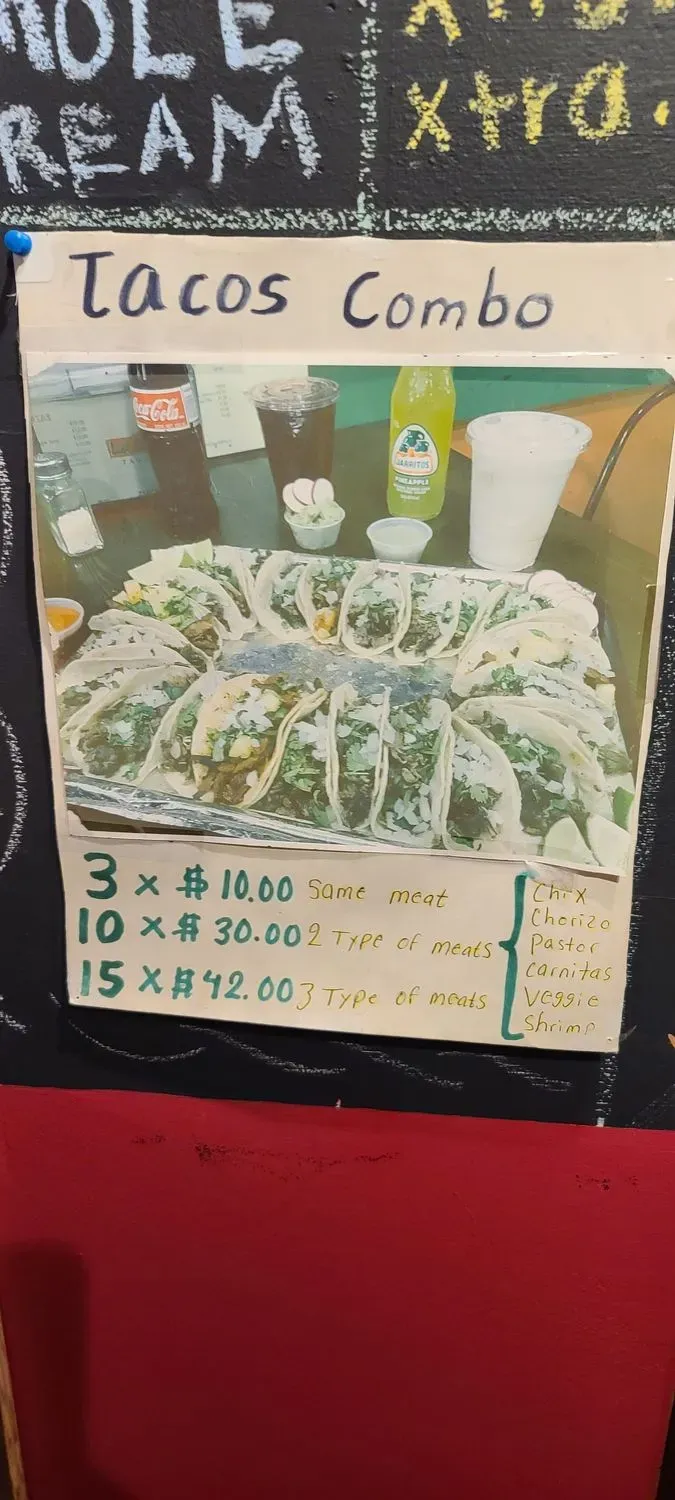 REAM
xtra.
Tacos Combo
Coca-Cola
JARRITOS
PINEAPPLE
3 x $ 10.00 Same meat
10 x $ 30.00 2 Type of meats
15 x $ 42.00 3 Type of meats
Chix
Chorizo
Pastor
carnitas
Veggie
Shrimp